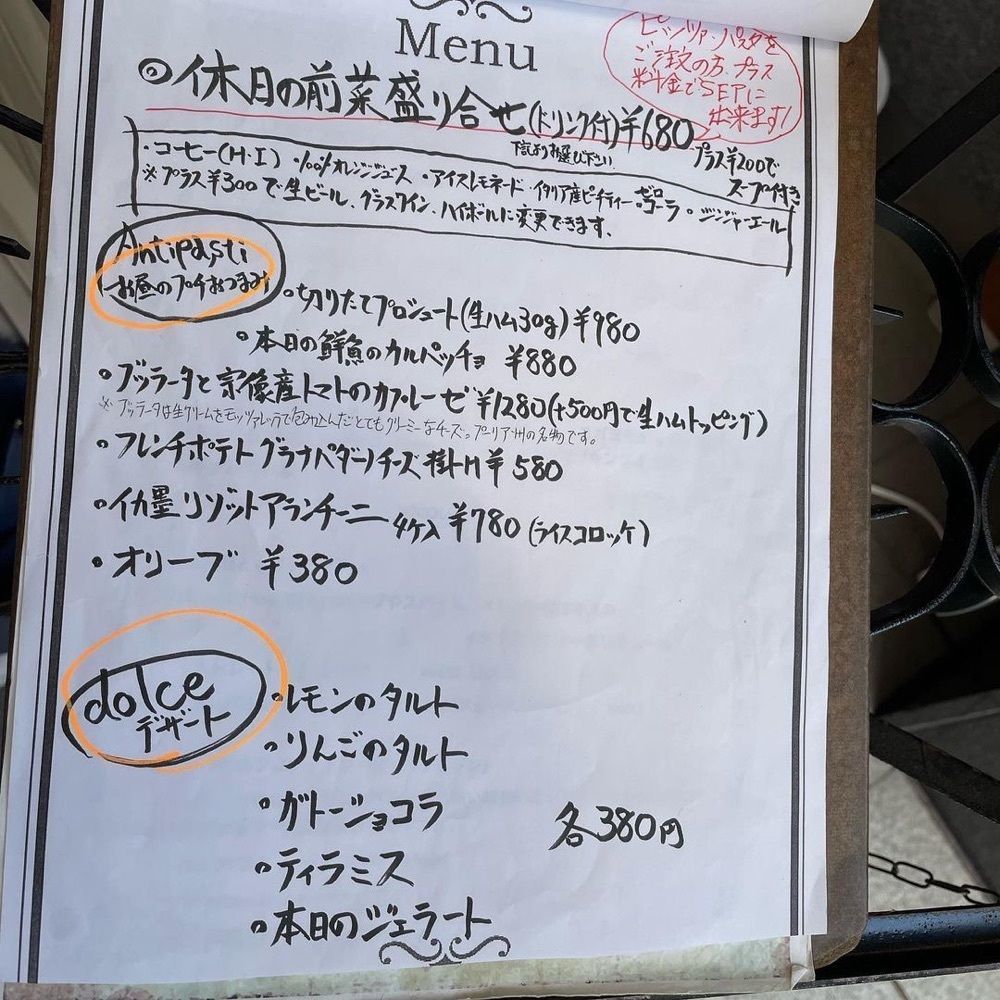 Menu
ピッツァ・パスタを
ご注文の方、プラス
料金でSETに
出来ます!
◎休日の前菜盛り合せ(ドリンク付)¥680
下記よりお選び下さい
プラス¥200で
スープ付き
・コーヒー(H・I) ・100%オレンジジュース ・アイスレモネード ・イタリア産ピーチティー ・ゼロコーラ ・ジンジャーエール
※プラス¥300で生ビール、グラスワイン、ハイボールに変更できます。
Antipasti
お昼のプチおつまみ
・切りたてプロシュート(生ハム30g)¥980
・本日の鮮魚のカルパッチョ ¥880
・ブッラータと宗像産トマトのカプレーゼ ¥1280(+500円で生ハムトッピング)
※ブッラータは生クリームをモッツァレッラで包み込んだとてもクリーミーなチーズ。プーリア州の名物です。
・フレンチポテト グラナパダーノチーズ掛け ¥580
・イカ墨リゾットアランチーニ 4ケ入 ¥780(ライスコロッケ)
・オリーブ ¥380
dolce
デザート
・レモンのタルト
・りんごのタルト
・ガトーショコラ
各380円
・ティラミス
・本日のジェラート